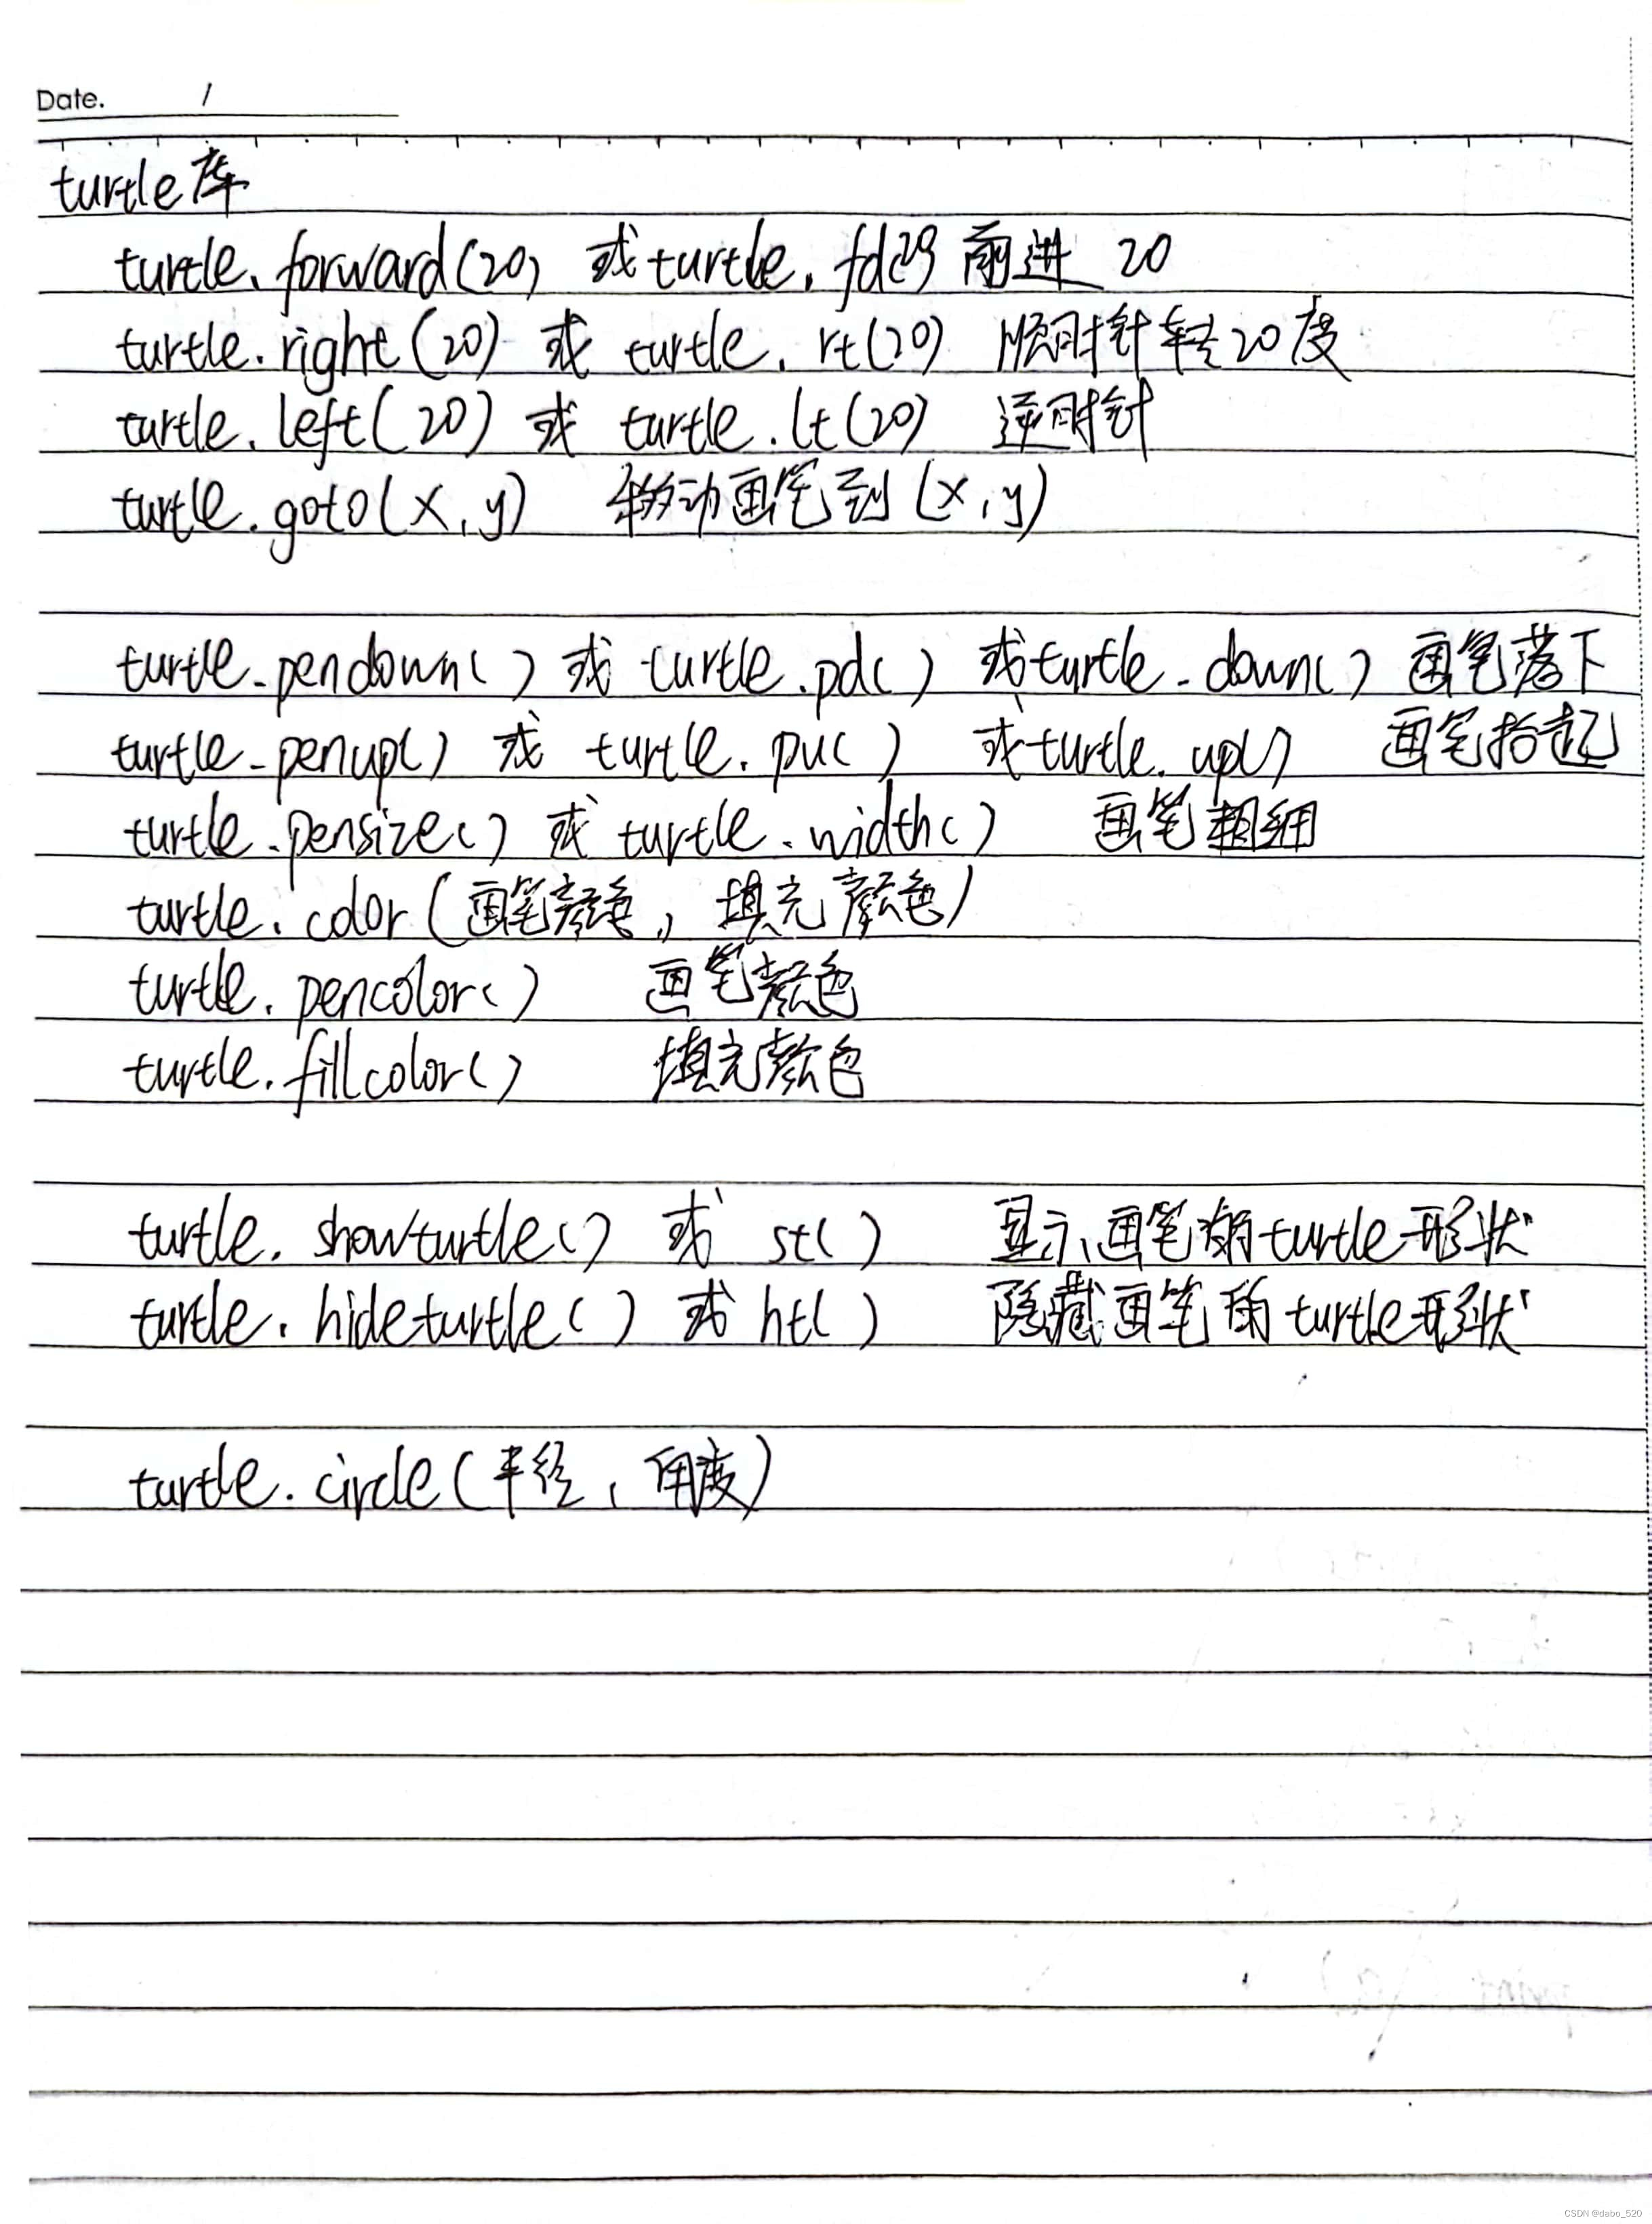 Date. /
turtle库
turtle.forward(20) 或turtle.fd(20) 前进 20
turtle.right(20) 或 turtle.rt(20) 顺时针转20度
turtle.left(20) 或 turtle.lt(20) 逆时针
turtle.goto(x,y) 移动画笔到(x,y)
turtle.pendown() 或 turtle.pd() 或turtle.down() 画笔落下
turtle.penup() 或 turtle.pu() 或turtle.up() 画笔抬起
turtle.pensize() 或 turtle.width() 画笔粗细
turtle.color(画笔颜色, 填充颜色)
turtle.pencolor() 画笔颜色
turtle.fillcolor() 填充颜色
turtle.showturtle() 或 st() 显示画笔的turtle形状
turtle.hideturtle() 或 ht() 隐藏画笔的turtle形状
turtle.circle(半径, 角度)
CSDN @dabo_520